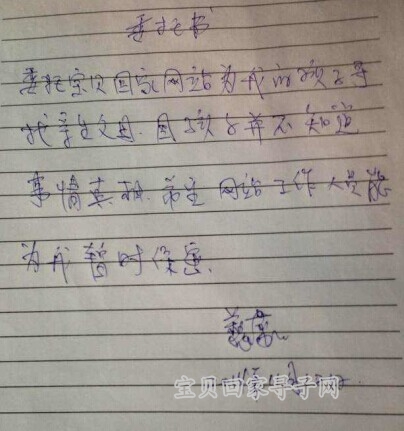 委托书
委托宝贝回家网站为我的孩子寻
找亲生父母.因孩子并不知道
事情真相.希望网站工作人员能
为我暂时保密.
宝贝回家寻子网